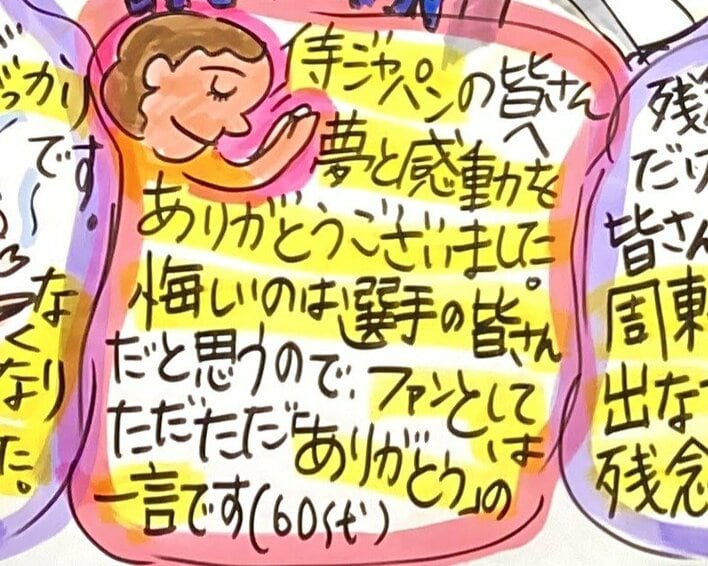 っかり
です。
〜
な
くなり
た。
侍ジャパンの皆さんへ
夢と感動を
ありがとうございました。
悔しいのは選手の皆さん
だと思うので、ファンとしては
ただただ「ありがとう」の
一言です(60代)
残
だけ
皆さん
周東
出な
残念